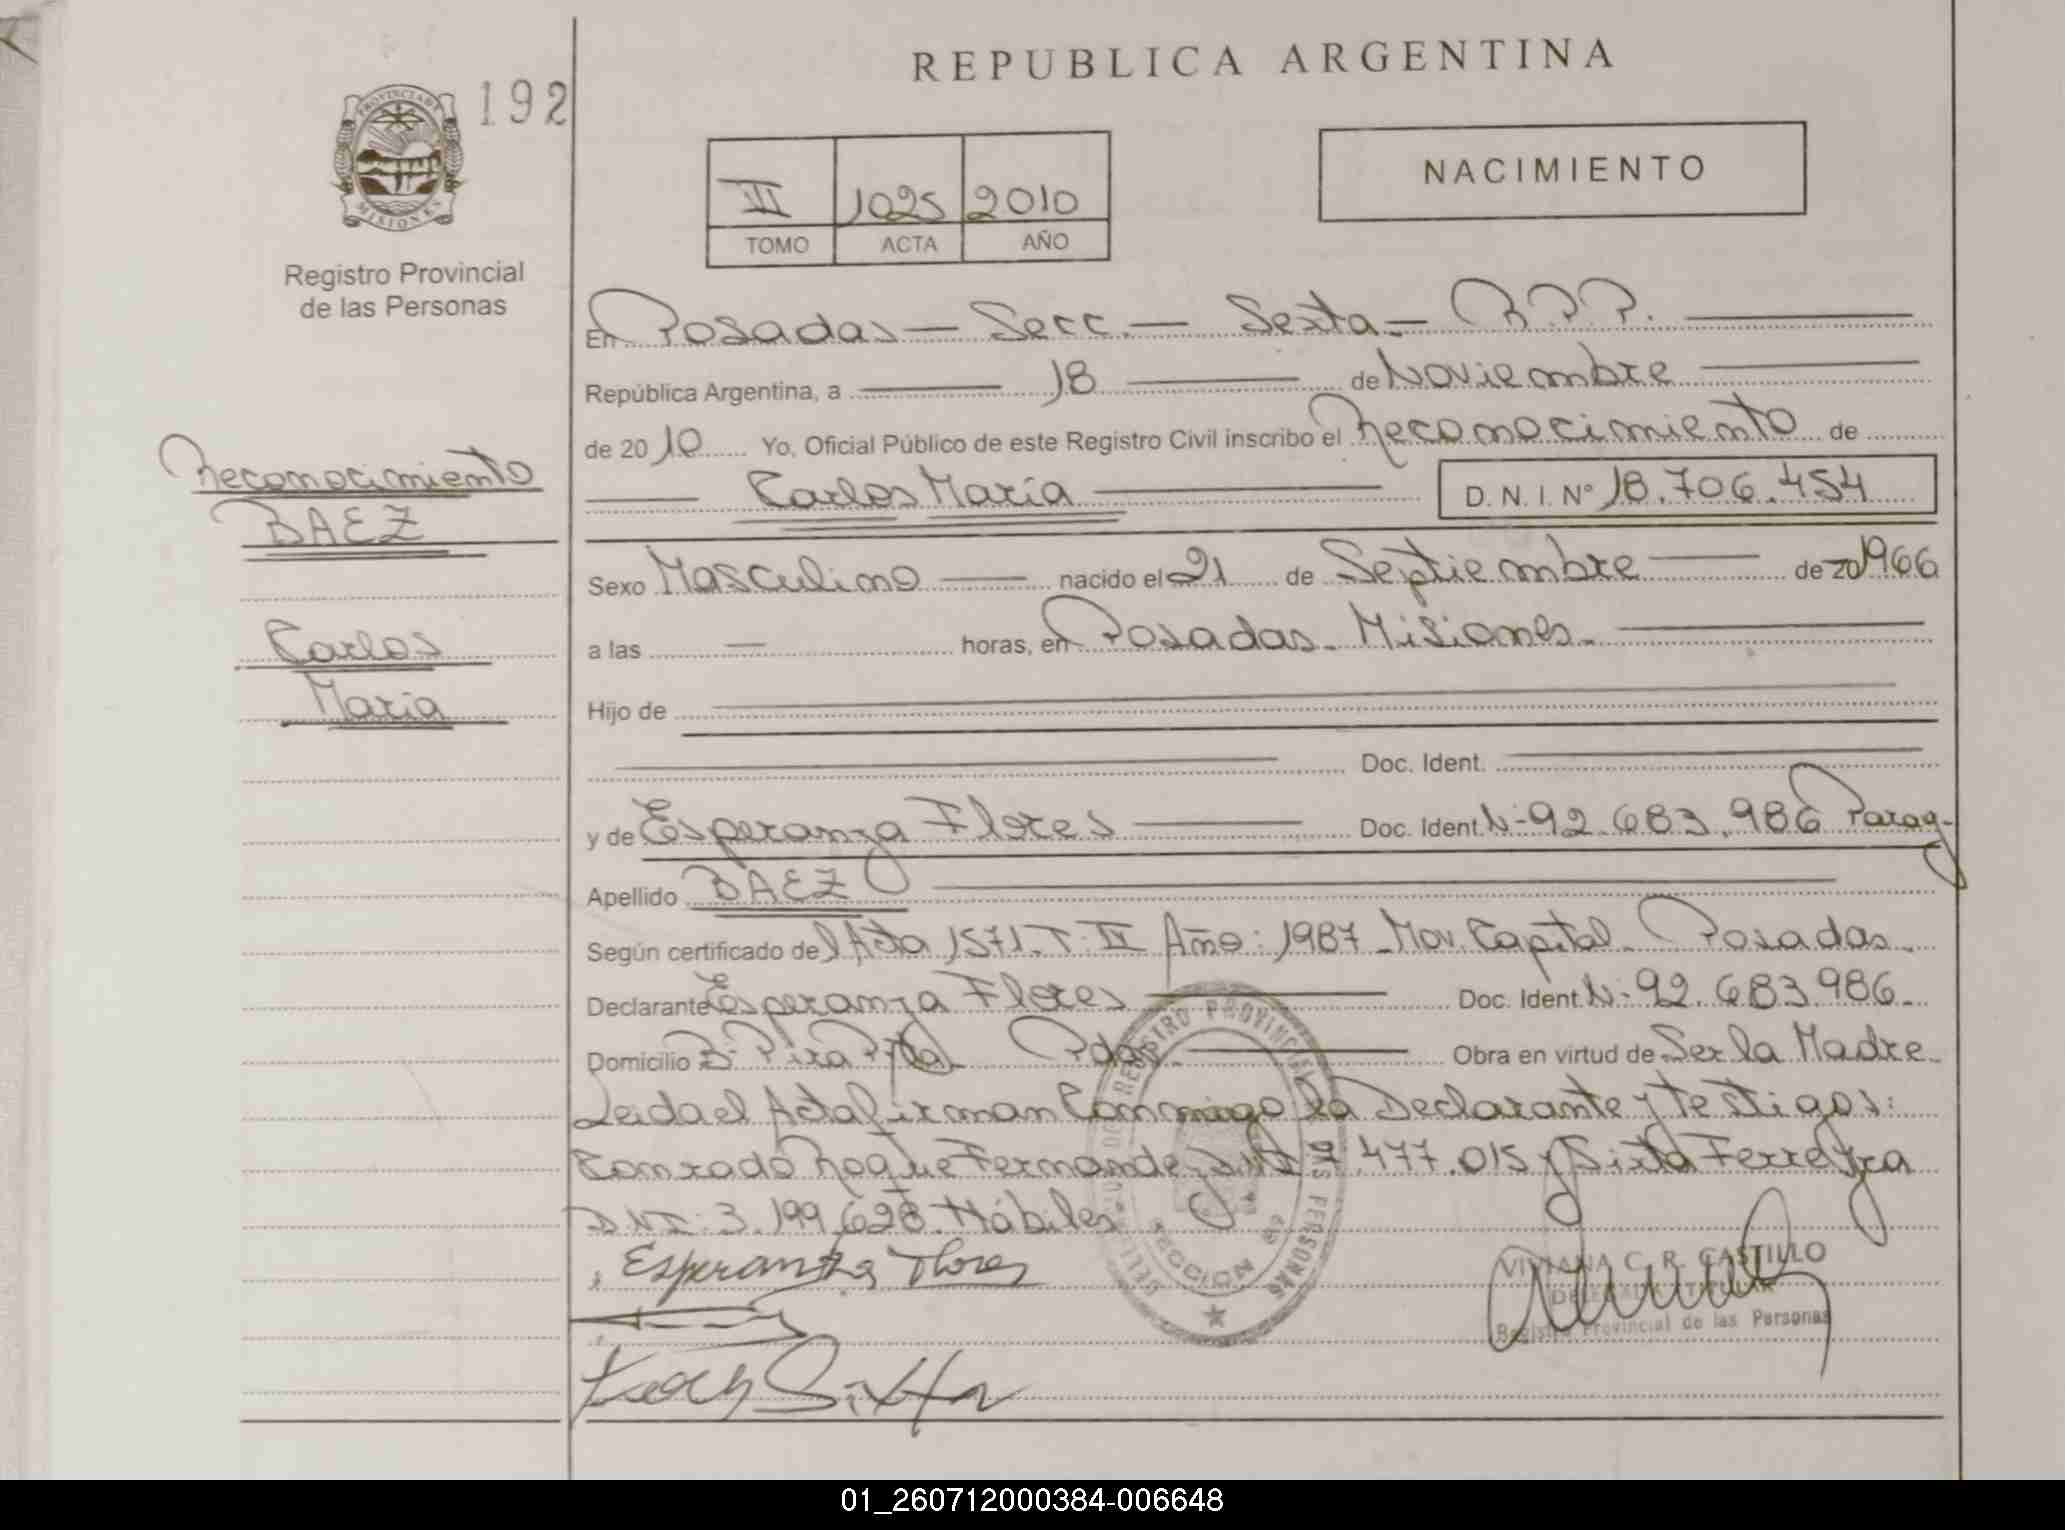 REPUBLICA ARGENTINA
192
PROVINCIA DE
MISIONES
Registro Provincial
de las Personas
1025 2010
TOMO ACTA AÑO
NACIMIENTO
Reconocimiento
BAEZ
Carlos
María
En Posadas — Secc. — Sexta. — R.P.P.
República Argentina, a 18 de Noviembre
de 2010 Yo, Oficial Público de este Registro Civil inscribo el Reconocimiento de
Carlos María D. N. I. Nº 18.706.454
Sexo Masculino nacido el 21 de Septiembre de 20 1966
a las — horas, en Posadas. Misiones.
Hijo de
Doc. Ident.
y de Esperanza Flores Doc. Ident. N- 92.683.986 Parag-
Apellido BAEZ
Según certificado del Acta 1571. T: IV Año: 1987 - Mov. Capital - Posadas.
Declarante Esperanza Flores Doc. Ident. N- 92.683.986.
Domicilio B- Pira Pdas. Obra en virtud de Ser la Madre
Leida el Acta firman Conmigo la Declarante y testigos:
Conrado Roque Fernandez 7.477.015 y Sixta Ferreyra
DNI: 3.199.628. Hábiles
Esperanza Flores
Sixta
REGISTRO PROVINCIAL DE LAS PERSONAS
SECCION 6ª
VIVIANA C. R. CASTILLO
DELEGADA TITULAR
Registro Provincial de las Personas
01_260712000384-006648